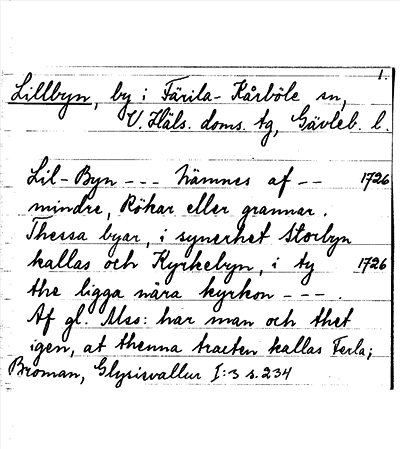 1.
Lillbyn, by i Färila-Kårböle sn,
V. Häls. doms. tg, Gävleb. l.
Lil-Byn --- nämnes af -- 1726
mindre, Rökar eller grannar.
Thessa byar, i synerhet Storbyn
kallas och Kyrkebyn, i ty 1726
the ligga nära kyrkon ---.
Af gl. Mss: har man och thet
igen, at thenna tracten kallas Ferla;
Broman, Glysisvallur I:3 s. 234